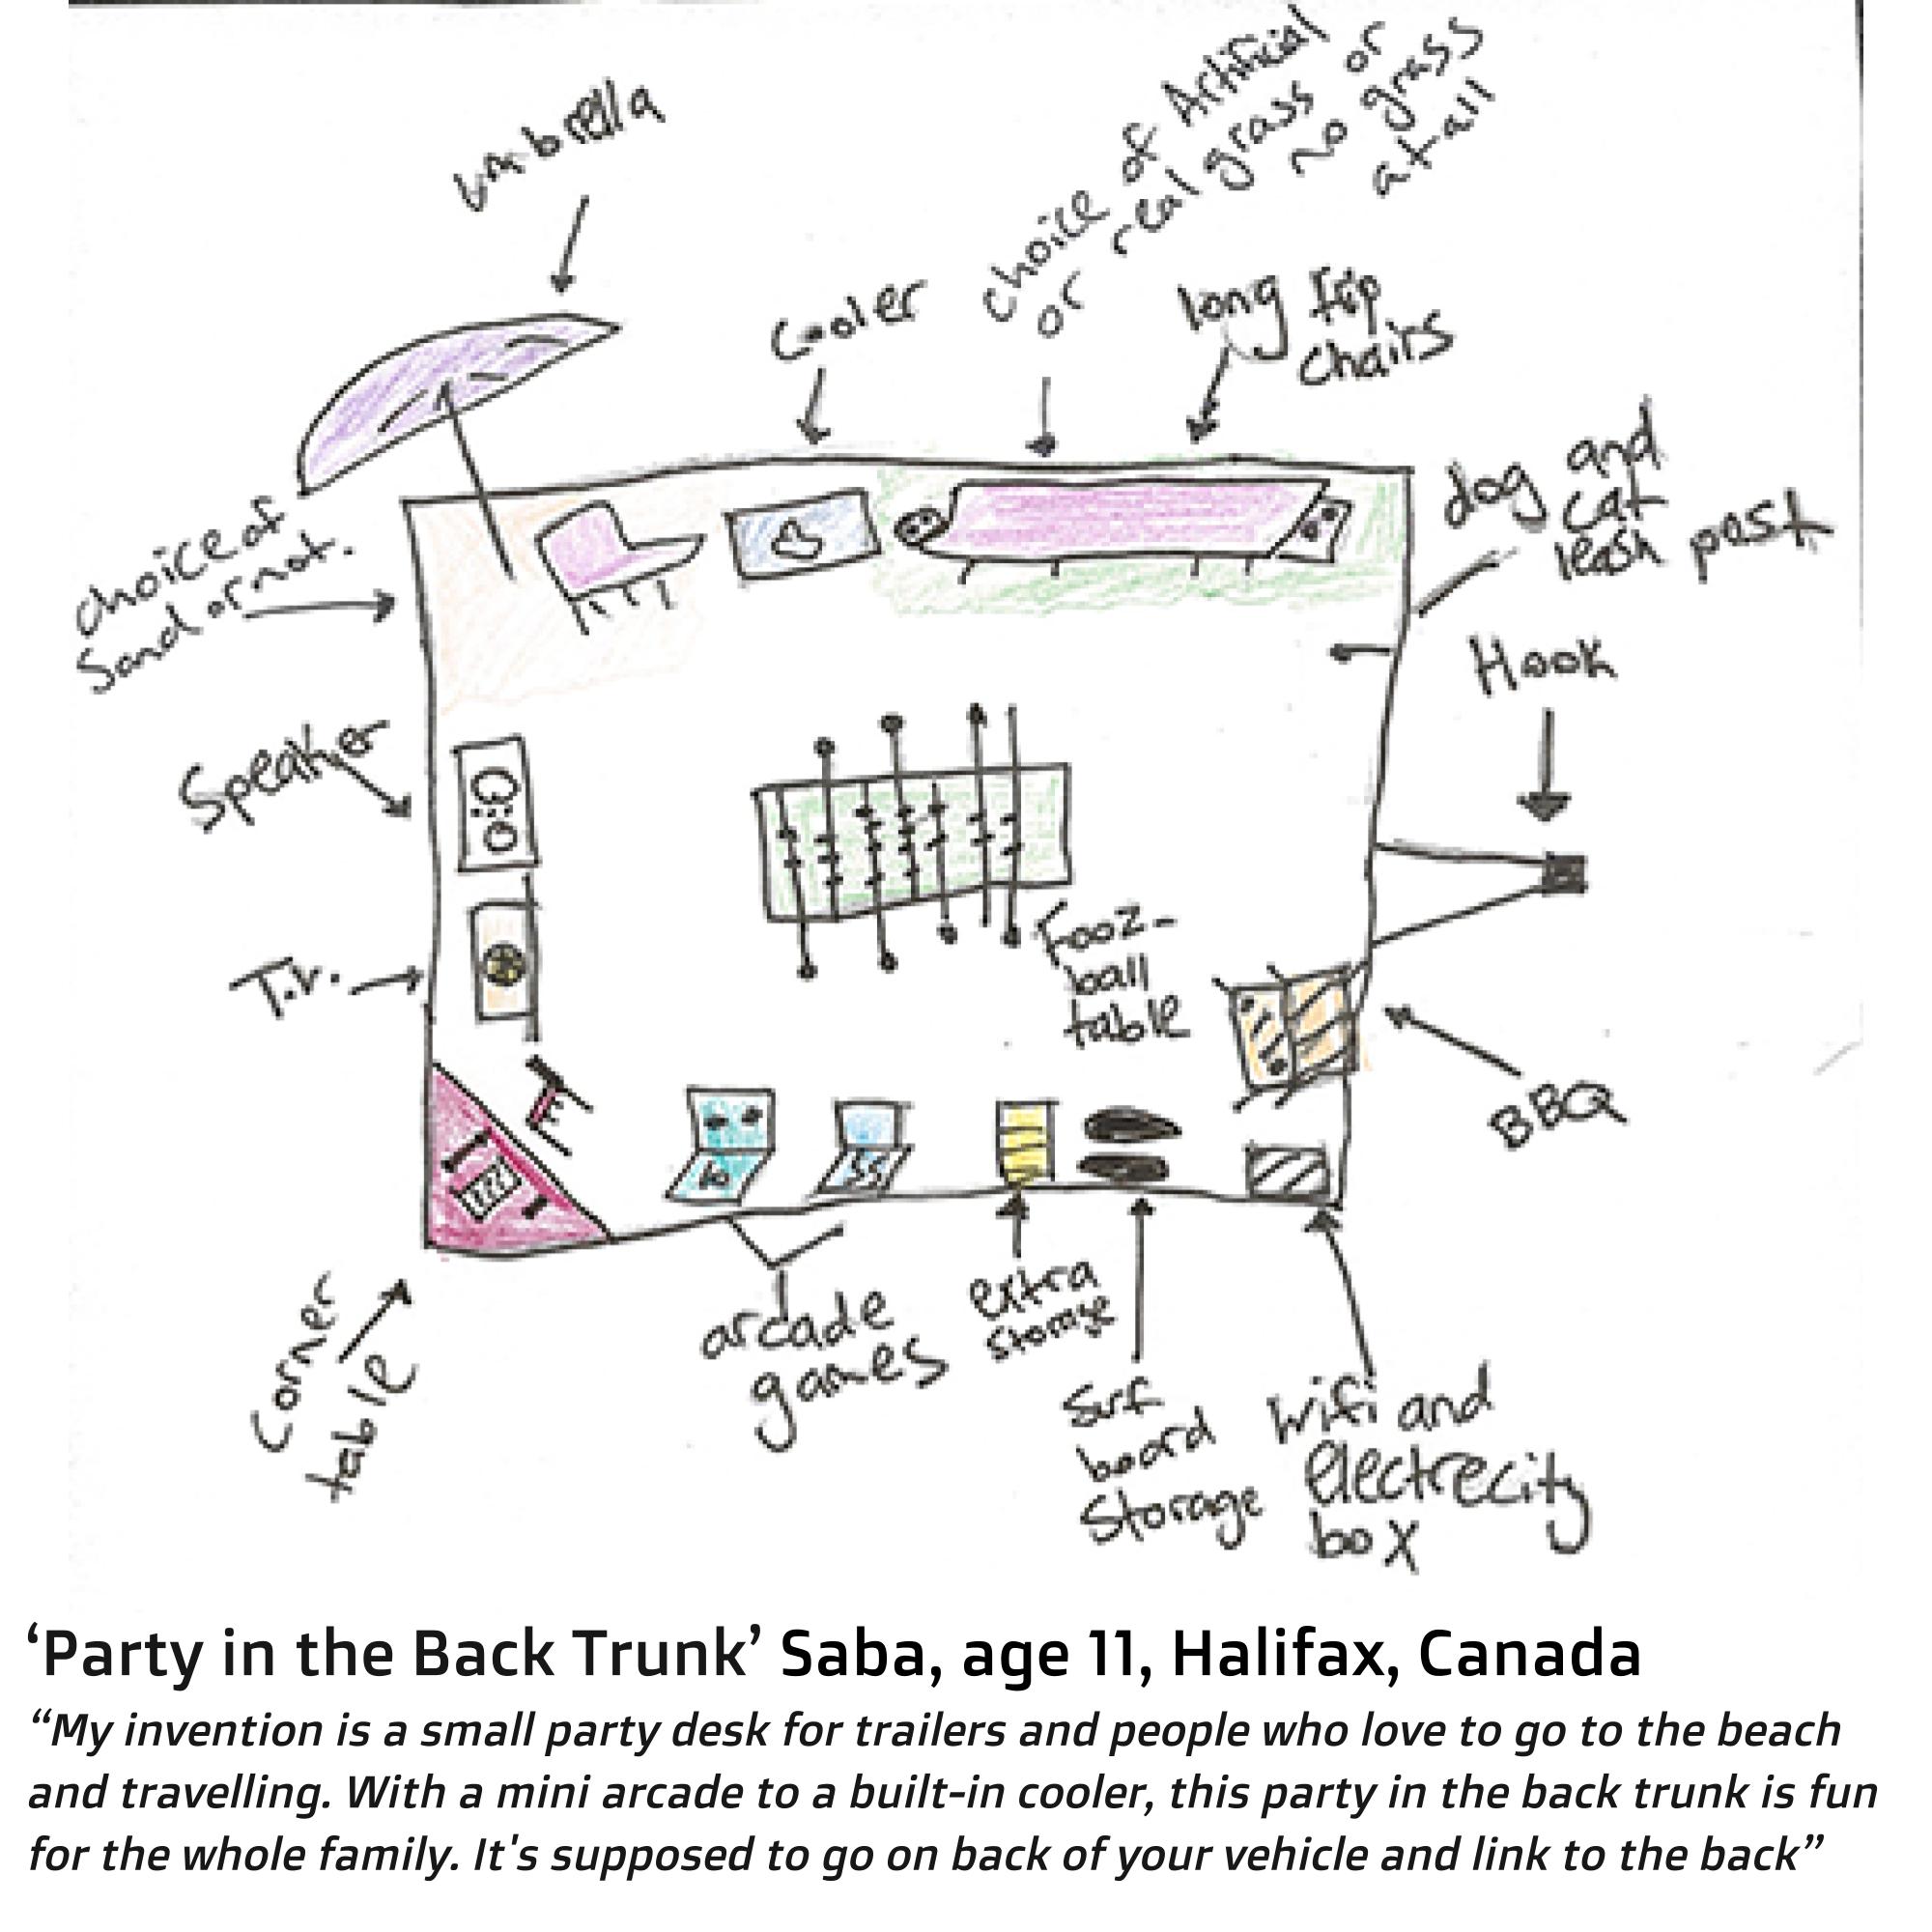 umbrella
choice of Artificial
or real grass or
no grass
at all
Cooler
long
chairs
dog and
cat
leash post
choice of
Sand or not.
Hook
Speaker
T.v.
Fooz-
ball
table
BBQ
Corner
table
arcade
games
extra
storage
Surf
board
Storage
Wifi and
Electrecity
box
‘Party in the Back Trunk’ Saba, age 11, Halifax, Canada
“My invention is a small party desk for trailers and people who love to go to the beach
and travelling. With a mini arcade to a built-in cooler, this party in the back trunk is fun
for the whole family. It's supposed to go on back of your vehicle and link to the back”